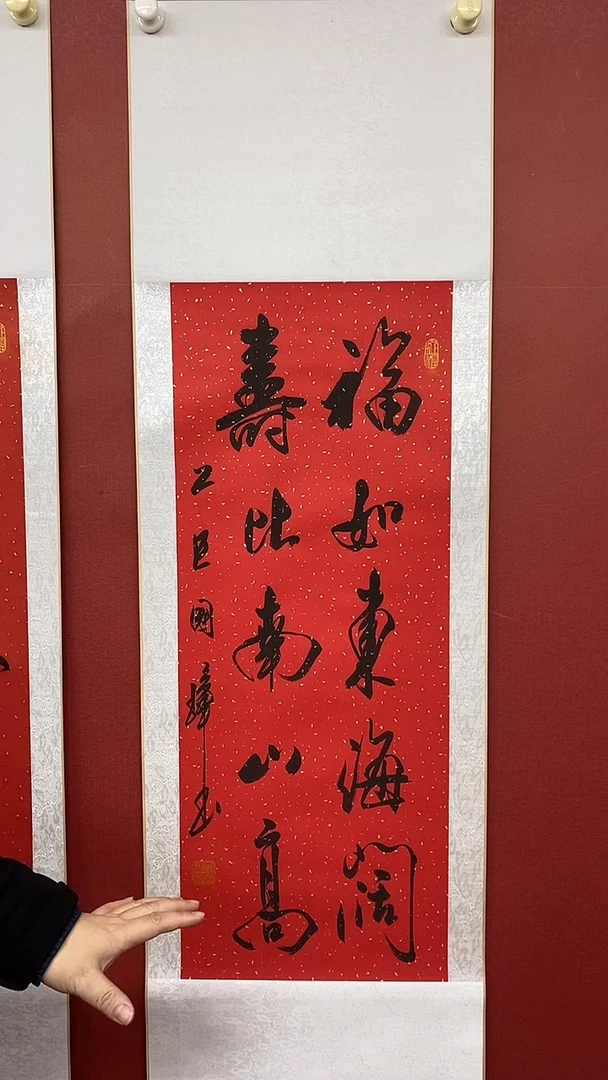 福如東海闊
壽比南山高
乙巳國璋書